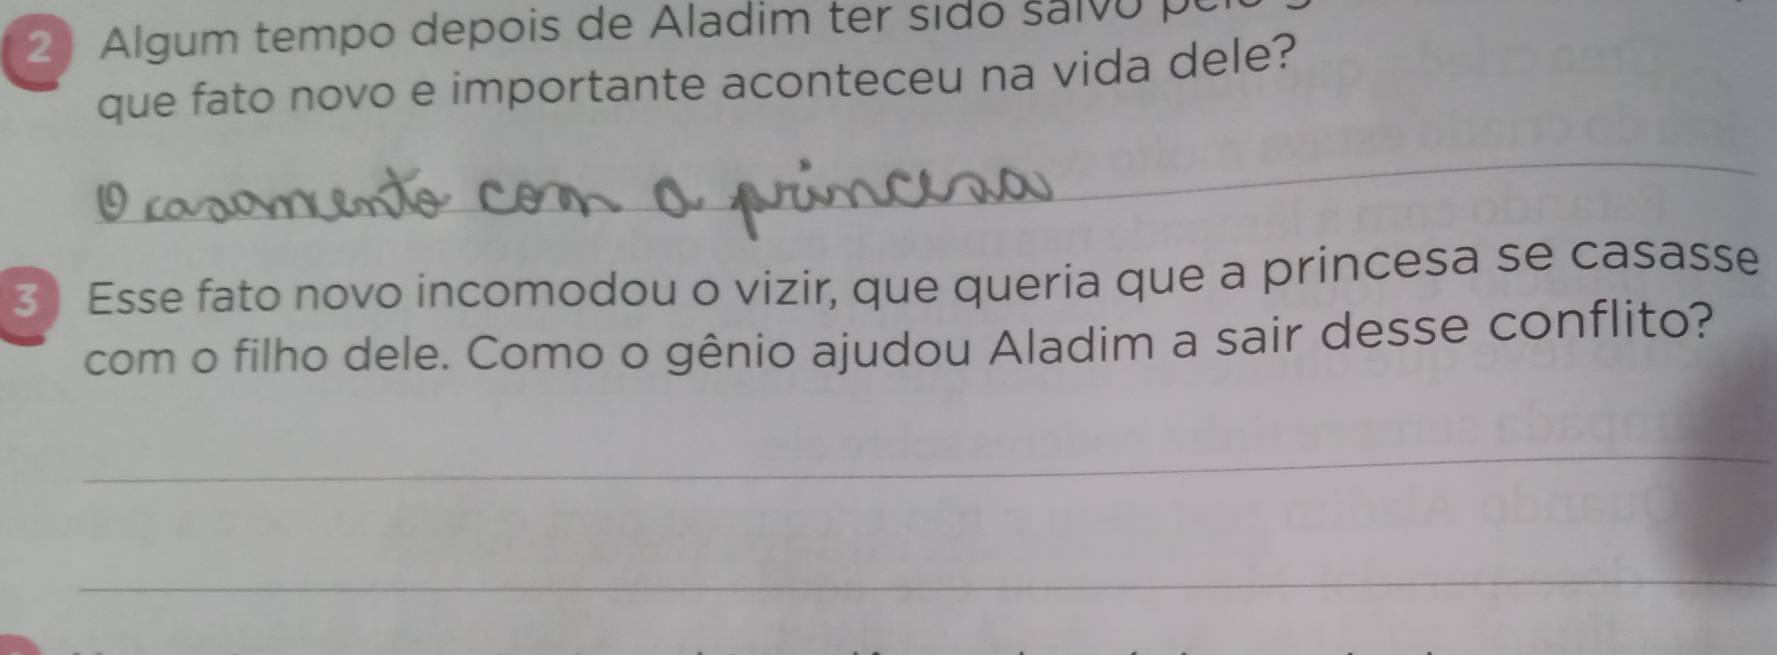 2 Algum tempo depois de Aladim ter sido salvo
que fato novo e importante aconteceu na vida dele?
O casamento com a princesa
3 Esse fato novo incomodou o vizir, que queria que a princesa se casasse
com o filho dele. Como o gênio ajudou Aladim a sair desse conflito?